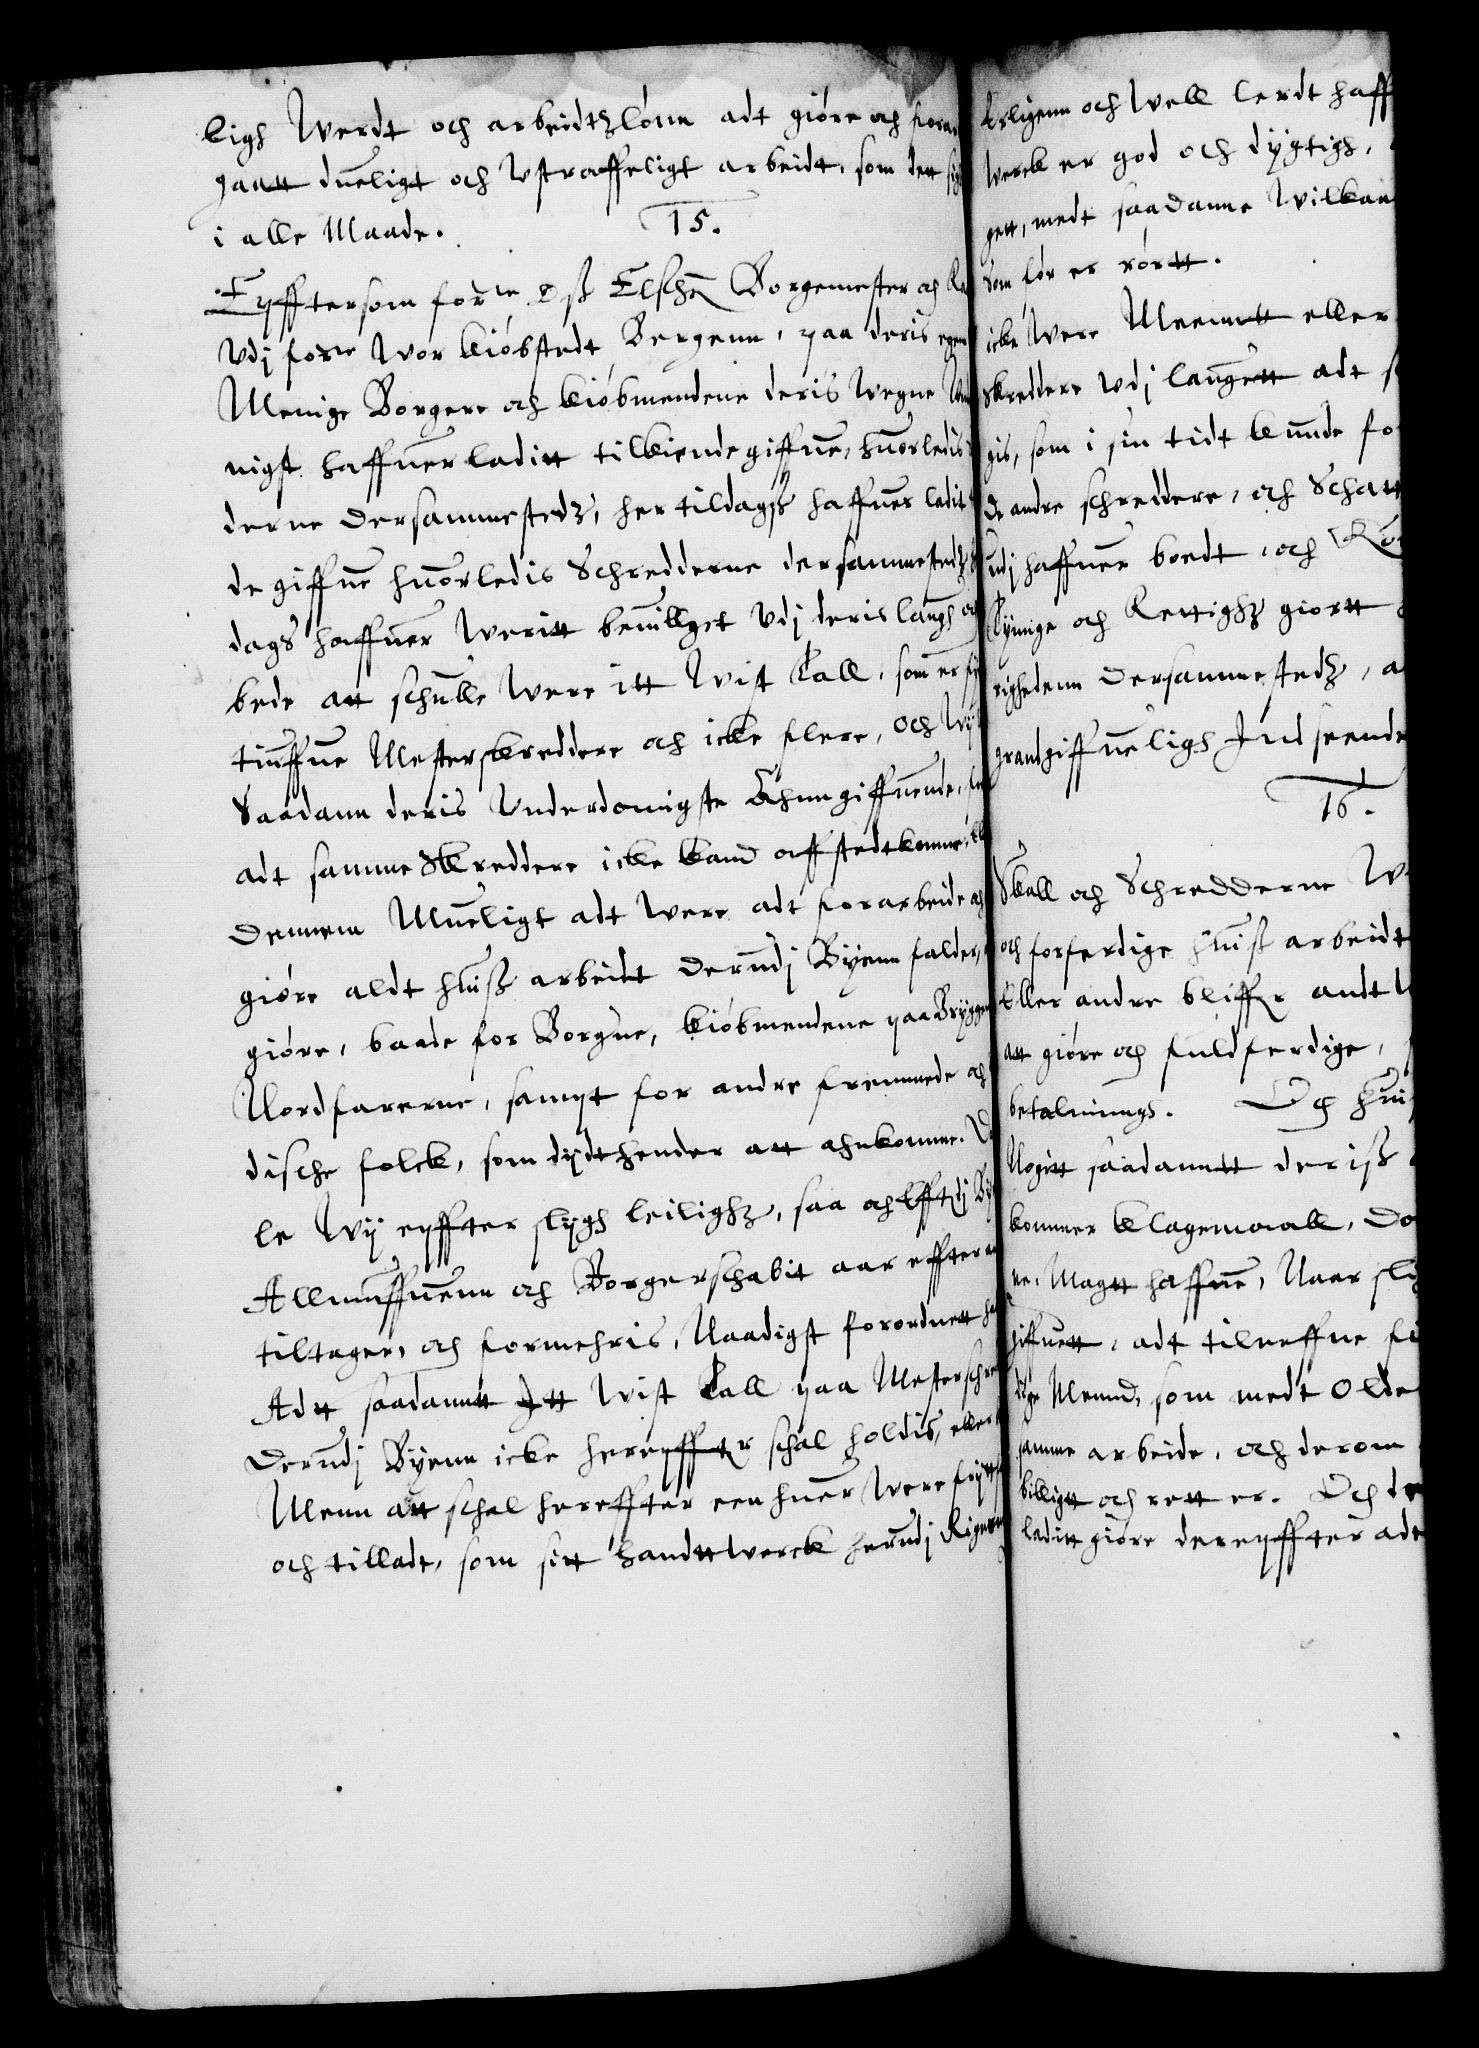 ligh Werdt och arbeidtzlønn adt giøre och forar
gaatt dueligt och Vstraffeligt arbeidt, som dett sig
i alle Maade.
15.
Epfftersom forne Oss Elschē Borgemester och Ra
Vdj forne Wor kiøbstedt Bergenn, paa deris egen
Menige Borgere och kiøbmendene deris Wegne
nigst haffuer laditt tilkiende giffue, huorledis
derne dersammestedz, her tildagss haffuer ladit
de giffue huorledis Schredderne dersammestedz
dags haffuer Weritt beuillget Vdj deris laugh och
bede att schulle Were itt Wist Tall, som er
tiuffue Mesterskreddere och icke flere, och Wij
Saadann deris Vnderdonigste Ahnngiffuende,
adt samme Skreddere icke kand aff stedtkomme,
dennem Mueligt adt Were adt forarbeide och
giøre aldt huiss arbeidt derudj Byenn falder,
giøre, baade for Borgne, kiøbmendene paa Bryggen
Nordfarerne, sampt for andre fremmede och
dische folck, som dijdt hender att ahnkomme. D
le Wij epffter sligh leilighz, saa och Effterdj By
Allmuffuenn och Borgerschabit aar effter
tiltager, och formehris, Naadigst forordnett ha
Adtt saadanntt Itt Wist Tall paa Mesterschre
derudj Byenn icke herepffter schal holdis, eller
Menn att schal hereffter een huer Were frijtt
och tilladt, som sitt handttwerck herudj Rigerne
Erligenn och Well lerdt haff
Werck er god och dygtigh,
gett, medt saadanne Wilkaa
Som før er rørtt.
icke Were Meentt eller
Skreddere Vdj laugett adt
gis, som i sin tidt kunde fo
de andre schreddere, och Schatt
udj haffuer boedt, och Ko
Tynge och Rettighz giortt
righedenn dersammestedz, a
grandgiffueligh Indseende
16.
Skall och Schredderne W
och forferdige huiss arbeidt
Eller andre bliffr andt
att giøre och fuldferdige,
betalningh. Och hui
Nogitt saadanntt deriss
kommer klagemaall, Da
ne. Magtt haffue, Naar sli
giffuett, adt tilneffne fi
dige Mennd, som medt Olde
samme arbeide, och derom
billigtt och rett er. Och de
laditt giøre derepffter adt